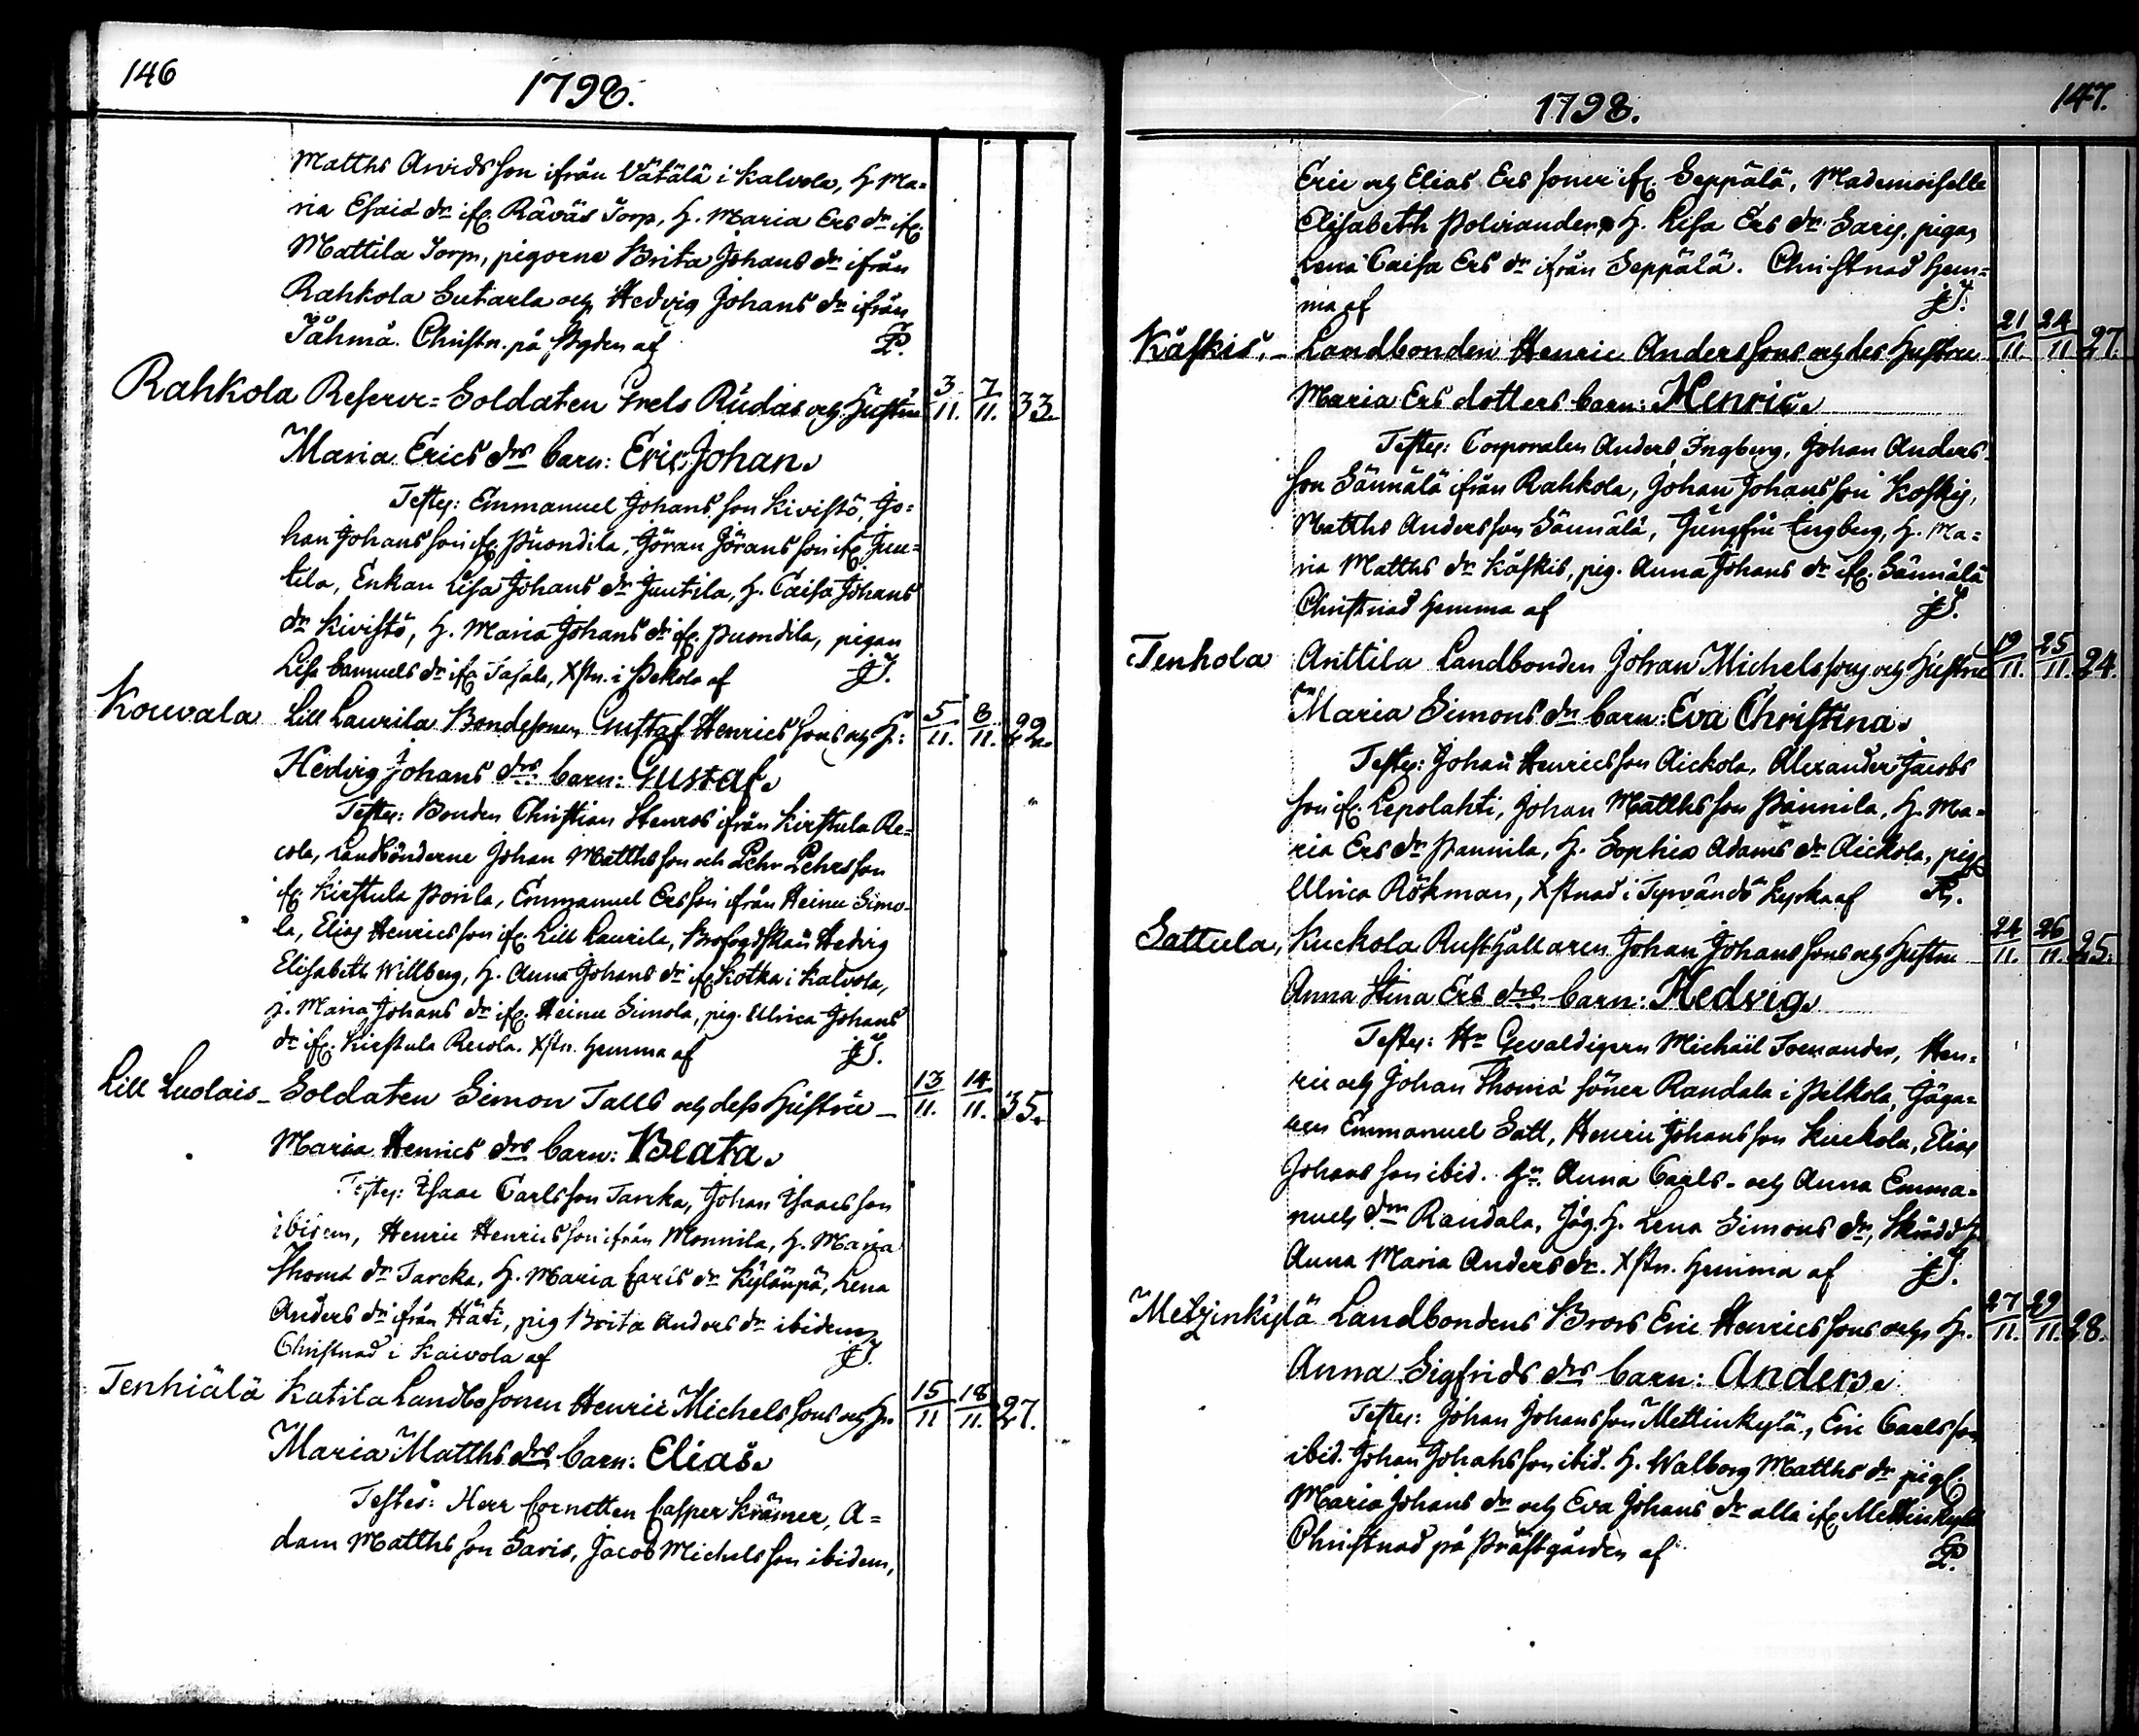 146
1798.
Matths Arvidsson ifrån Vätälä i Kalvola, H. Ma=
ria Esaiæ dr ifr. Räväs Torp, H. Maria Ers dr ifr.
Mattila Torp, pigorne Brita Johans dr ifrån
Rahkola Sutarla och Hedvig Johans dr ifrån
Tähmä. Christn. på Bygden af P.
Rahkola Reserve=Soldaten Nils Rudas och Hustru 3/11. 7/11. 33.
Maria Erics drs barn: Eric Johan.
Testes: Emmanuel Johansson Kivistö, Jo=
han Johansson ifr. Puondila, Jöran Jöransson ifr. Juu=
tila, Enkan Lisa Johans dr Juutila, H. Caisa Johans
dr Kivistö, H. Maria Johans dr ifr. Puondila, pigan
Lisa Samuels dr ifr. Tasala, Xstn. i Pekola af JJ.
Kouvala Lill Laurila Bondesonen Gustaf Henricssons och H: 5/11. 8/11. 22.
Hedvig Johans drs barn: Gustaf.
Testes: Bonden Christian Stenros ifrån Kirstula Re=
cola, Landbönderne Johan Matthsson och Pehr Pehrsson
ifr. Kirstula Porila, Emmanuel Ersson ifrån Heinu Simo=
la, Elias Henricsson ifr. Lill Laurila, Brofogdskan Hedvig
Elisabeth Willberg, H. Anna Johans dr ifr. Kotka i Kalvola,
p. Maria Johans dr ifr. Heinu Simola, pig. Ulrica Johans
dr ifr. Kirstula Recola. Xstn. hemma af JJ.
Lill Luolais Soldaten Simon Talls och dess Hustru 13/11. 14/11. 35.
Maria Henrics drs barn: Beata.
Testes: Isaac Carlsson Tarcka, Johan Isaacsson
ibidem, Henric Henricsson ifrån Monnila, H. Maria
Thomæ dr Tarcka, H. Maria Caris dr Kylänpä, Lena
Anders dr ifrån Häti, pig Brita Anders dr ibidem
Christnad i Kaivola af JJ.
Tenhiälä Katila Landbosonen Henric Michelssons och H. 15/11 18/11. 27.
Maria Matths drs barn: Elias.
Testes: Herr Cornetten Casper Krämer, A=
dam Matthsson Saris, Jacob Michelsson ibidem,
1798.
147.
Eric och Elias Erssoner ifr. Seppälä, Mademoiselle
Elisabeth Polviander, H. Lisa Ers dr Saris, pigan
Lena Caisa Ers dr ifrån Seppälä. Christnad hem=
ma af JJ.
Käskis. Landbonden Henric Anderssons och des Hustru 21/11. 24/11 27.
Maria Ers dotters barn: Henric.
Testes: Corporalen Anders Ingberg, Johan Anders=
son Sännälä ifrån Rahkola, Johan Johansson Koskis,
Matths Andersson Sännälä, Jungfru Engberg, H. Ma=
ria Matths dr Käskis, pig. Anna Johans dr ifr. Sännälä
Christnad hemma af JJ.
Tenhola Anttila Landbonden Johan Michelssons och Hustru 19/11. 25/11. 24.
Maria Simons drs barn: Eva Christina.
Testes: Johan Henricsson Aickola, Alexander Jacobs
son ifr. Lepolahti, Johan Matthsson Pannila, H. Ma=
ria Ers dr Pannila, H. Sophia Adams dr Aickola, pig.
Ulrica Rökman, Xstnad i Tyrvändö Kyrka af
Sattula, Kuckola Rusthållaren Johan Johanssons och Hustru 24/11. 26/11. 25.
Anna Stina Ers drs barn: Hedvig.
Testes: Hr Gevaldigern Michäil Toenander, Hen=
ric och Johan Thomæ söner Randala i Pelkola, Jäga=
ren Emmanuel Satt, Henric Johansson Kuckola, Elias
Johansson ibid. Hr. Anna Carls- och Anna Emma=
nuels drr Randala, Jäg. H. Lena Simons dr, Skrädd H.
Anna Maria Anders dr. Xstn. hemma af JJ.
Metzinkylä Landbondens Brors Eric Henricssons och H. 27/11. 29/11. 28.
Anna Sigfrids drs barn: Anders.
Testes: Johan Johansson Mettinkylä, Eric Carlsson
ibid. Johan Johansson ibid. H. Walborg Matths dr pig.
Maria Johans dr och Eva Johans dr alla ifr. Mettinkylä
Christnad på Prästgården af P.